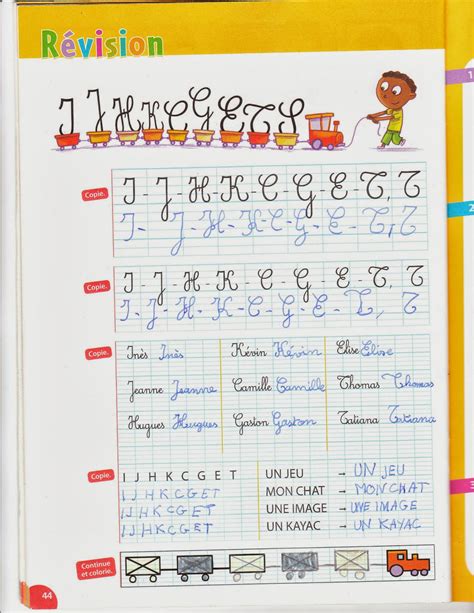 Révision
I J H K C G E T S
Copie. I - J - H - K - C - G - E - T, T
I - J - H - K - C - G - E - T, T
Copie. I - J - H - K - C - G - E - T, T
I - J - H - K - C - G - E - I, T
Copie. Inès Inès Kévin Kévin Elise Elise
Jeanne Jeanne Camille Camille Thomas Thomas
Hugues Hugues Gaston Gaston Tatiana Tatiana
Copie. I J H K C G E T UN JEU → UN JEU
I J H K C G E T MON CHAT → MON CHAT
I J H K C G E T UNE IMAGE → UNE IMAGE
I J H K C G E T UN KAYAC → UN KAYAC
Continue
et colorie.
44
1
2
3